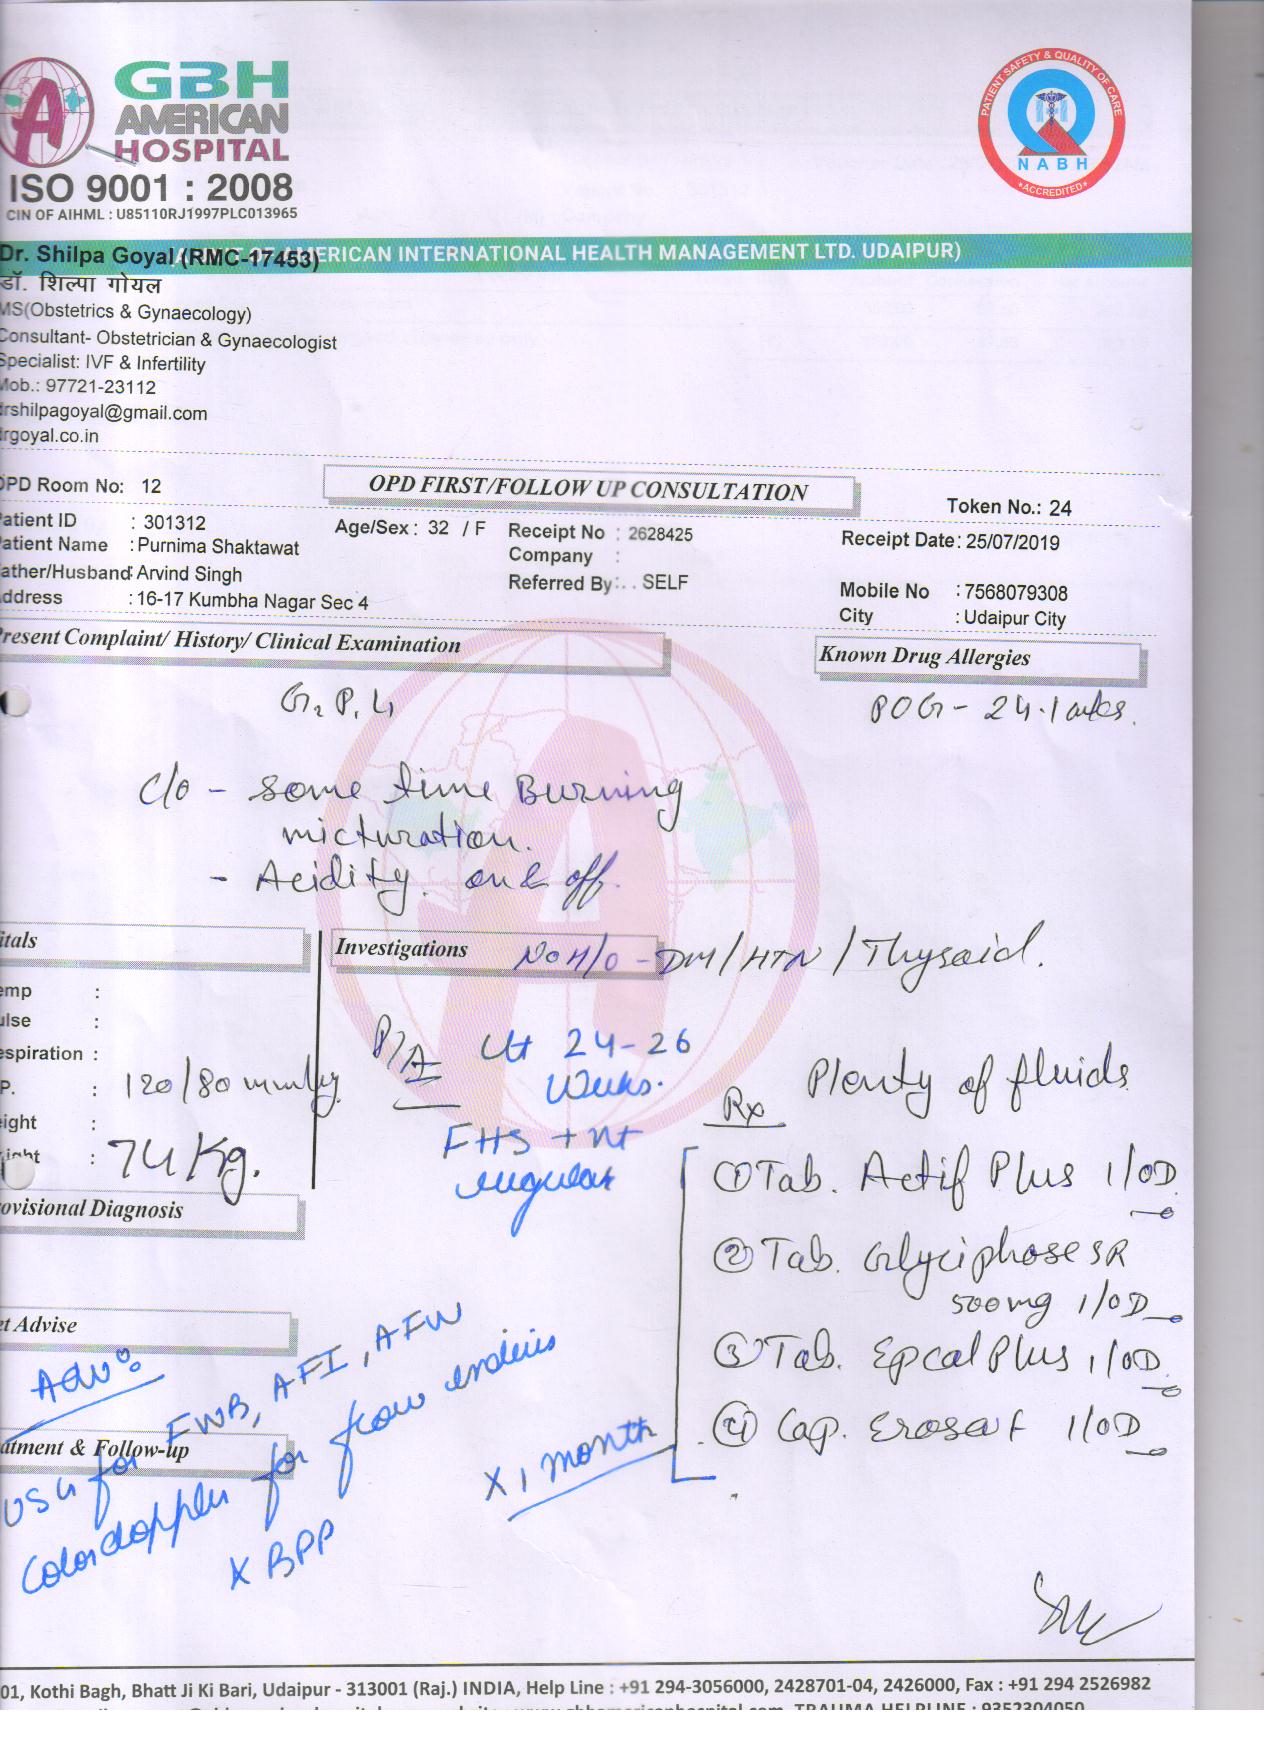 GBH
AMERICAN
HOSPITAL
ISO 9001 : 2008
CIN OF AIHML : U85110RJ1997PLC013965
PATIENT SAFETY & QUALITY OF CARE
NABH
ACCREDITED
AMERICAN INTERNATIONAL HEALTH MANAGEMENT LTD. UDAIPUR)
Dr. Shilpa Goyal (RMC-17453)
डॉ. शिल्पा गोयल
MS(Obstetrics & Gynaecology)
Consultant- Obstetrician & Gynaecologist
Specialist: IVF & Infertility
Mob.: 97721-23112
drshilpagoyal@gmail.com
drgoyal.co.in
OPD Room No: 12
OPD FIRST/FOLLOW UP CONSULTATION
Token No.: 24
Patient ID : 301312 Age/Sex : 32 / F Receipt No : 2628425 Receipt Date : 25/07/2019
Patient Name : Purnima Shaktawat Company :
Father/Husband : Arvind Singh Referred By : . . SELF Mobile No : 7568079308
Address : 16-17 Kumbha Nagar Sec 4 City : Udaipur City
Present Complaint/ History/ Clinical Examination
Known Drug Allergies
G2 P1 L1
POG - 24.1 wks.
C/o - Some time Burning
micturation.
- Acidity. on & off.
itals
Investigations
No H/o - DM / HTN / Thysoid.
emp :
ulse :
espiration :
P. : 120/80 mmHg
eight :
ight : 74 Kg.
P/A Ut 24-26
Weeks.
FHS + nt
regular
Plenty of fluids
Rx
① Tab. Actif Plus 1/OD
② Tab. Glyciphose SR
500mg 1/OD
③ Tab. Epcal Plus 1/OD
④ Cap. Erosa F 1/OD
X 1 month
ovisional Diagnosis
et Advise
Adv:
atment & Follow-up
USG for FWB, AFI, AFW
Color doppler for flow
X BPP
01, Kothi Bagh, Bhatt Ji Ki Bari, Udaipur - 313001 (Raj.) INDIA, Help Line : +91 294-3056000, 2428701-04, 2426000, Fax : +91 294 2526982
TRAUMA HELPLINE : 9352304050